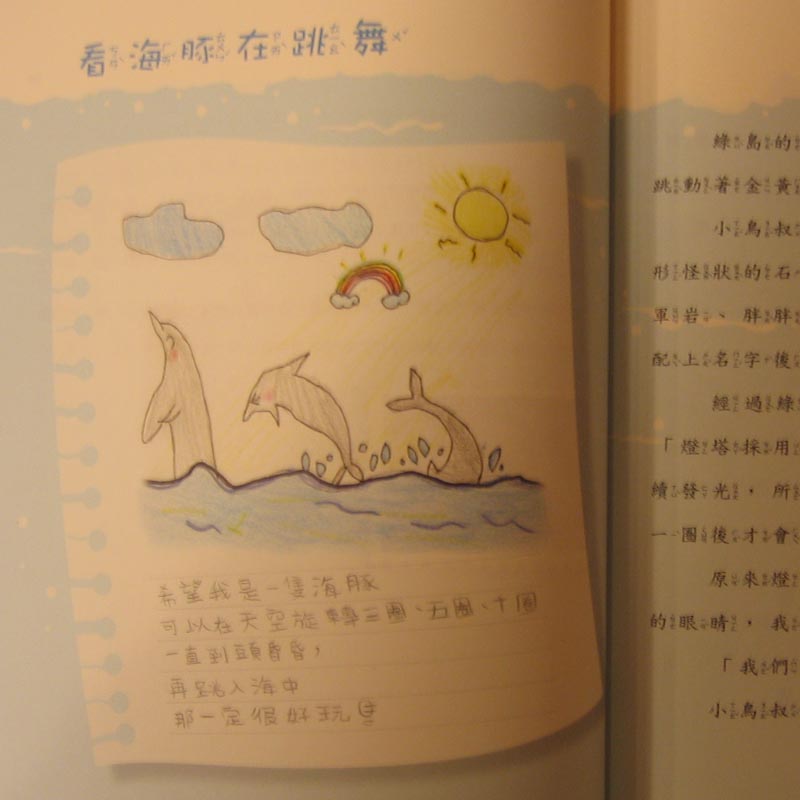 看海豚在跳舞
希望我是一隻海豚
可以在天空旋轉三圈、五圈、十圈
一直到頭昏昏，
再跳入海中
那一定很好玩
綠島的
跳動著金黃
小鳥叔
形怪狀的石
軍岩、胖胖
配上名字後
經過綠
「燈塔採用
續發光，所
一圈後才會
原來燈
的眼睛，我
「我們
小鳥叔